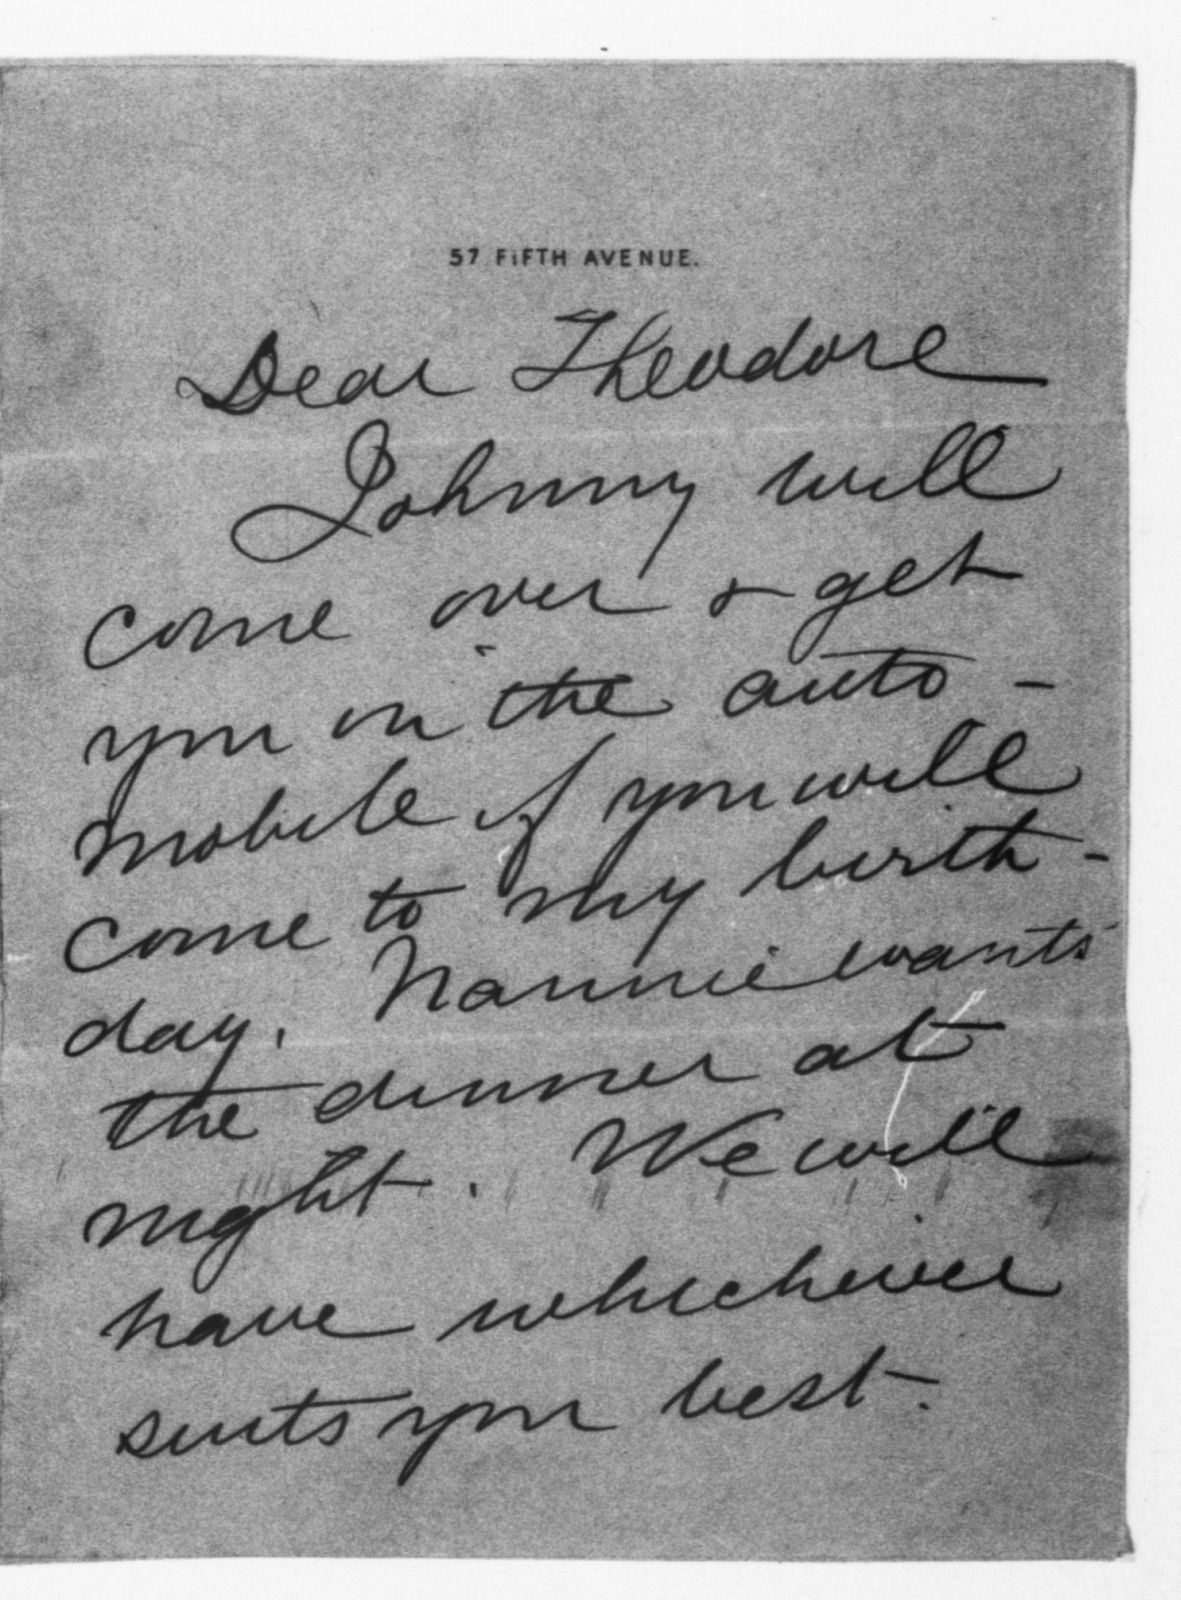 57 FIFTH AVENUE.
Dear Theodore
Johnny will
come over & get
you in the auto -
mobile if you will
come to my birth -
day. Nannie wants
the dinner at
night. We will
have whichever
suits you best.